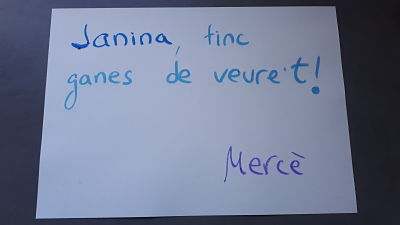 Janina, tinc
ganes de veure't!
Mercè